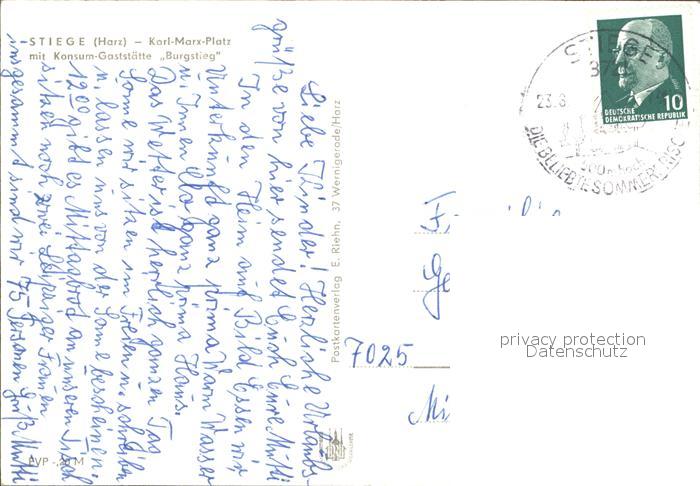 STIEGE (Harz) – Karl-Marx-Platz
mit Konsum-Gaststätte „Burgstieg"
Liebe Kinder! Herzliche Urlaubs-
grüße von hier sendet Euch Eure Mutti
In den Heim auf Bild Essen wir
Unterkunft ganz prima Warm Wasser
u. Innen Clo ganz prima Haus.
Das Wetter ist herrlich ganzen Tag
Sonne wir sitzen im Freien u. schreiben
u. lassen uns von der Sonne bescheinen.
12 00 gibt es Mittagbrod an unseren Tisch
sitzen noch zwei Leipziger Frauen
insgesammt sind wir 75 Personen Gruß Mutti
Postkartenverlag E. Riehn, 37 Wernigerode/Harz
STIEGE
372
23.8.
DIE BELIEBTE SOMMERFRISC
500 m hoch
DEUTSCHE
DEMOKRATISCHE REPUBLIK
10
F
Ge
7025
Mi
privacy protection
Datenschutz
EVP -,20 M